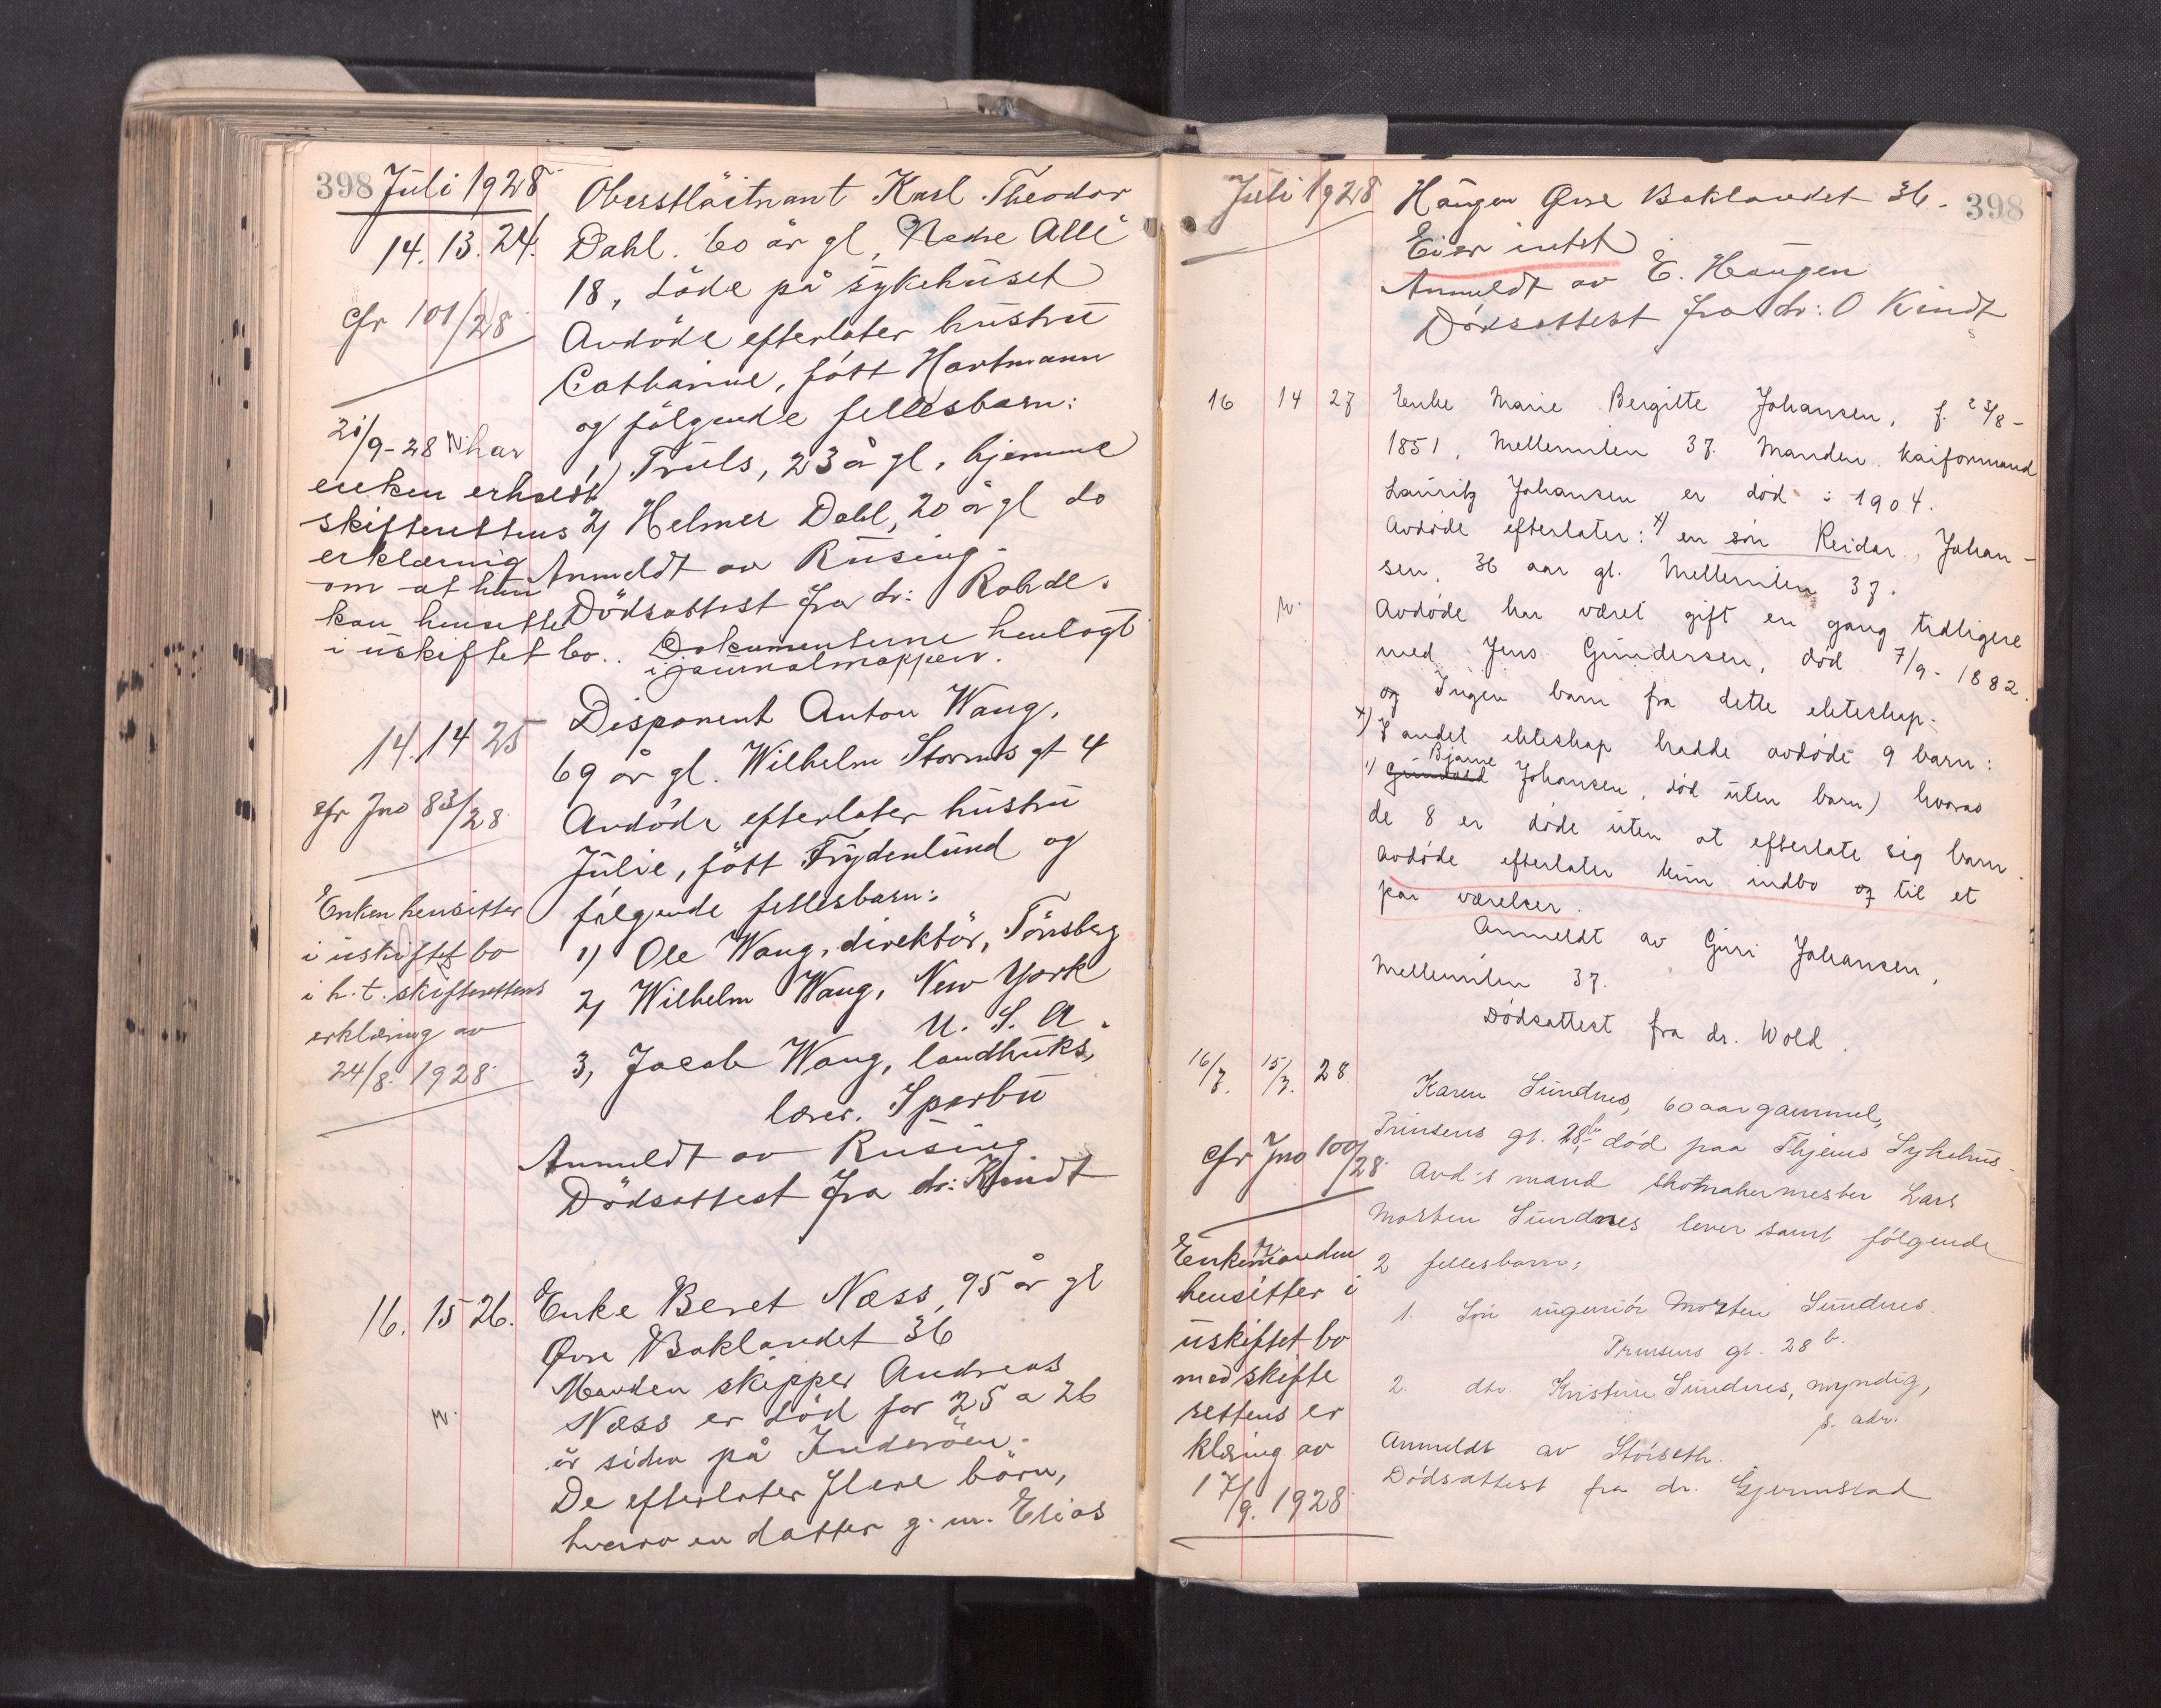 398 Juli 1928
14. 13. 24.
cfr 101/28
21/9-28 har
enken erholdt
skifterettens
erklæring
om at hun
kan hensitte
i uskiftet bo.
Oberstløitnant Karl Theodor
Dahl. 60 år gl, Nedre Alle
18, döde på sykehuset
Avdöde efterlater hustru
Catharine, fött Hartmann
og fölgende fellesbarn:
1) Truls, 23 år gl, hjemme
2) Helmer Dahl, 20 år gl do
Anmeldt av Rusing.
Dödsattest fra dr: Rohde.
Dokumenterne henlagt
i journalmappen.
14. 14 25
cfr Jno 83/28
Enken hensitter
i uskiftet bo
i h. t. skifterettens
erklæring av
24/8. 1928
Disponent Anton Wang,
69 år gl. Wilhelm Storms gt 4
Avdöde efterlater hustru
Julie, fött Frydenlund og
fölgende fellesbarn:
1) Ole Wang, direktör, Tönsberg
2) Wilhelm Wang, New York
U. S. A.
3, Jacob Wang, landbruks,
lærer. Sparbu
Anmeldt av Rusing
Dödsattest fra dr: Kindt
16. 15 26.
Enke Beret Næss, 95 år gl
Øvre Baklandet 36
Manden skipper Andreas
Næss er död for 25 a 26
år siden på Inderöen.
De efterlater flere börn,
hvorav en datter g. m. Elias
Juli 1928
398
Haugen Øvre Baklandet 36.
Eier intet
Anmeldt av E. Haugen
Dödsattest fra dr: O Kindt
16 14 27
Enke Marie Bergitte Johansen, f. 23/8-
1851, Mellemilen 37. Manden kaiformand
Lauritz Johansen er död i 1904.
Avdöde efterlater: x) en sön Reidar Johan-
sen, 36 aar gl. Mellemilen 37.
Avdöde har været gift en gang tidligere
med Jens Gundersen, död 7/9-1882.
og Ingen barn fra dette ekteskap.
x) I andet ekteskap hadde avdöde 9 barn:
Bjarne
1) Johansen, död uten barn) hvorav
de 8 er döde uten at efterlate sig barn.
Avdöde efterlater kun indbo og til et
par værelser.
Anmeldt av Guri Johansen,
Mellemilen 37.
Dödsattest fra dr. Wold.
16/7. 15/7. 28
cfr Jno 100/28
Enkemanden
hensitter i
uskiftet bo
med skifte
rettens er
klæring av
17/9. 1928
Karen Sundnes, 60 aar gammel,
Prinsens gt. 28b, död paa Thjems Sykehus.
Avd's mand skomakermester Lars
Morten Sundnes lever samt fölgende
2 fellesbarn:
1. Sön ingeniör Morten Sundnes.
Prinsens gt. 28 b.
2. dtr. Kristine Sundnes, myndig,
s. adr.
Anmeldt av Störseth.
Dödsattest fra dr. Gjermstad